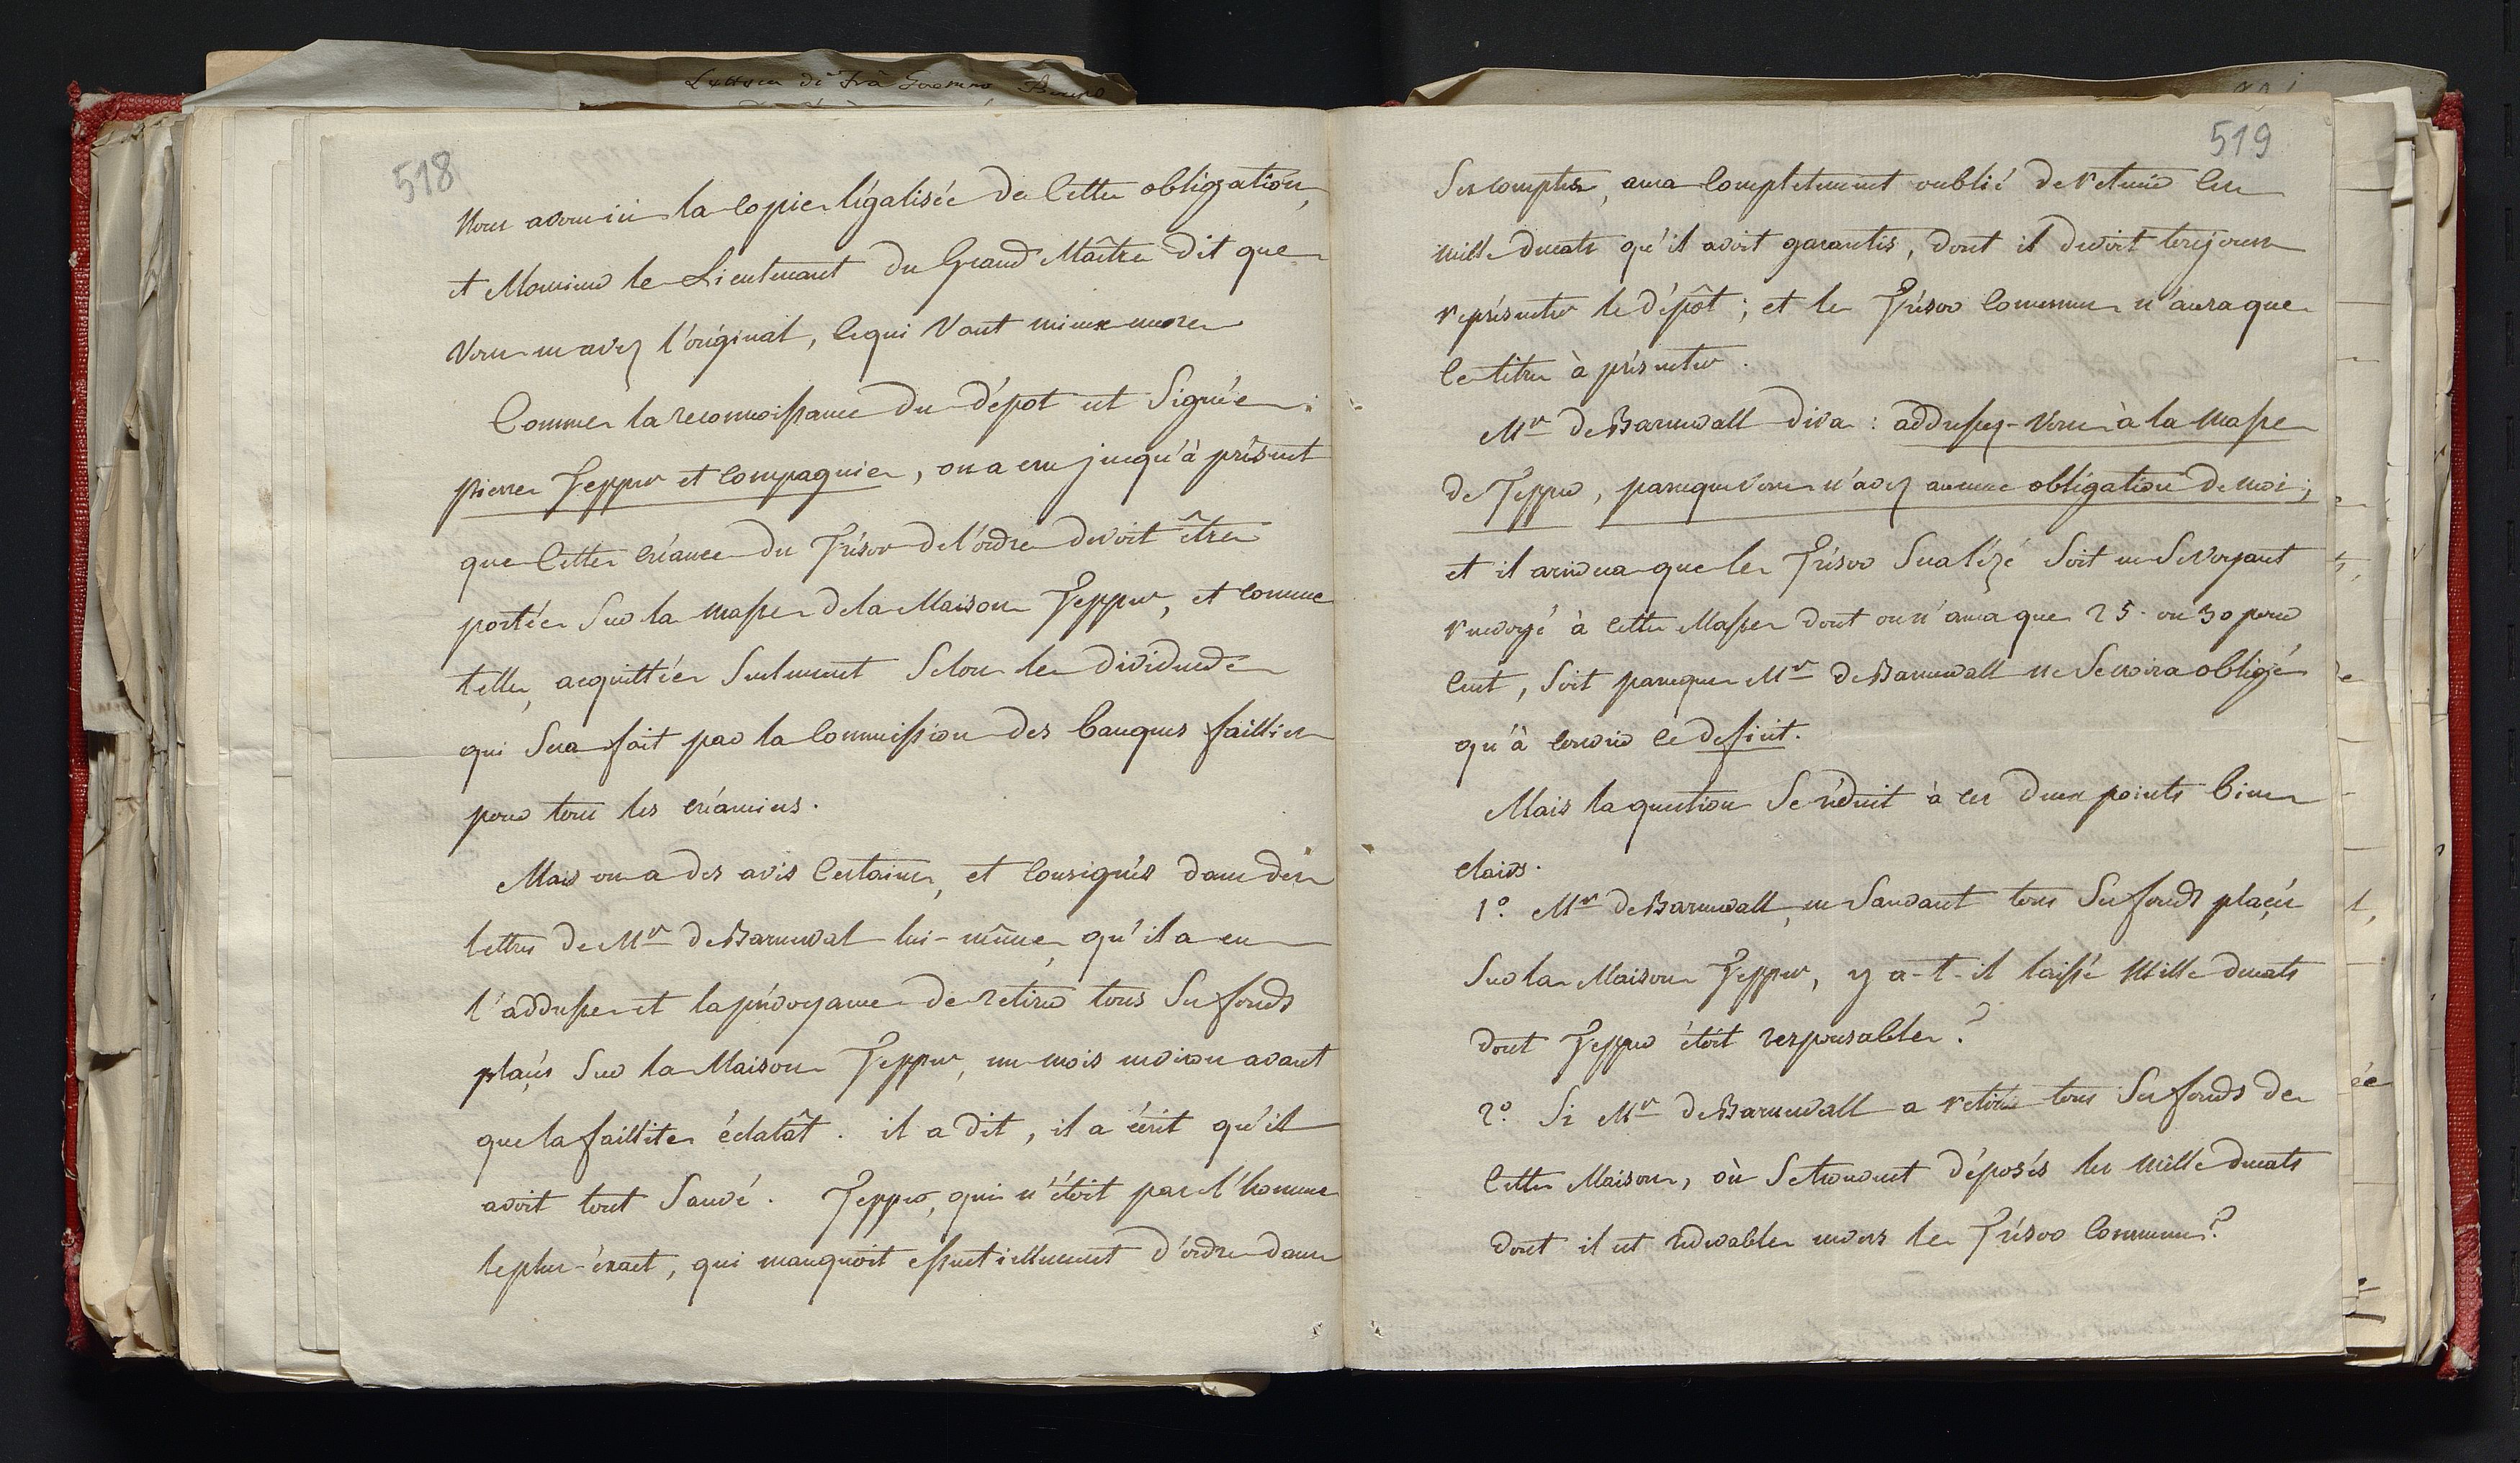 518
Nous avons ici la copie légalisée de cette obligation,
et Monsieur le Lieutenant du Grand Maître dit que
vous en avez l'original, ce qui vaut mieux encore
Comme la reconnoissance du dépot est signée:
pierre Tepper et compagnie, on a cru jusqu'à présent
que cette créance du Trésor de l'ordre devoit être
portée sur la masse de la Maison Tepper, et comme
telle, acquittée seulement selon le dividende
qui sera fait par la Commission des banques faillies
pour tous les créanciers.
Mais on a des avis certains, et consignés dans des
lettres de Mr de Barneval lui-même, qu'il a eu
l'addresse et la prévoyance de retirer tous ses fonds
placés sur la Maison Tepper, un mois environ avant
que la faillite éclatât. il a dit, il a écrit qu'il
avoit tout sauvé. Tepper, qui n'étoit pas l'homme
le plus-éxact, qui manquoit essentiellement d'ordre dans
519
ses comptes, aura completement oublié de retenir les
mille ducats qu'il avoit garantis, dont il devoit toujours
représenter le dépôt; et le Trésor Commun n'aura que
ce titre à présenter.
Mr de Barnewall dira: addressez-vous à la masse
de Tepper, parceque vous n'avez aucune obligation de moi;
et il arrivera que le Trésor sera lézé soit en se voyant
renvoyé à cette Masse dont on n'aura que 25. ou 30 pour
cent, soit parceque Mr de Barnewall ne se croira obligé
qu'à couvrir ce deficit.
Mais la question se réduit à ces deux points bien
clairs.
1º. Mr de Barnewall, en sauvant tous ses fonds placés
sur la Maison Tepper, y a-t-il laissé Mille ducats
dont Tepper étoit responsable?
2º. Si Mr de Barnewall a retiré tous ses fonds de
cette Maison, où se trouvent déposés les Mille ducats
dont il est redevable envers le Trésor Commun?